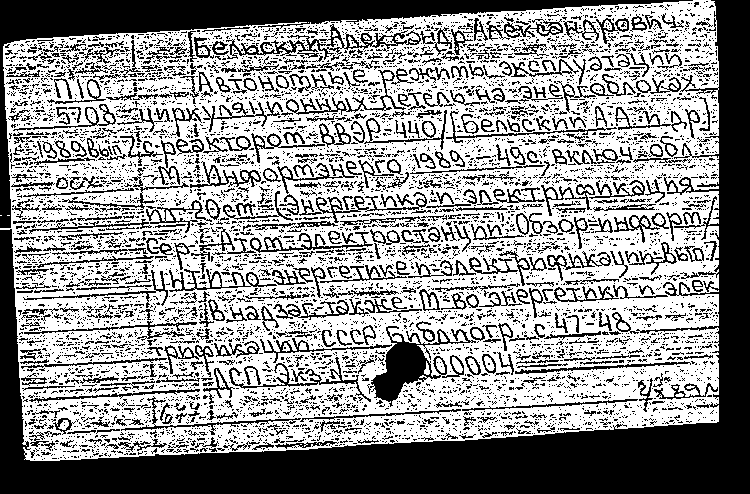 Бельский, Александр Александрович
П10 Автономные режимы эксплуатации
5708 циркуляционных петель на энергоблоках
1989 вып.7 с реактором ВВЭР-440 / [Бельский А.А. и др.]
осх М.: Информэнерго, 1989. - 49с., включ. обл.
ил.; 20см. - (Энергетика и электрификация.
Сер. "Атом. электростанции": Обзор. информ. /
ЦНТИ по энергетике и электрификации; Вып.7
В надзаг. также: М-во энергетики и элек
трификации СССР. Библиогр.: с.47-48
ДСП. Экз. 000004
0 677 89